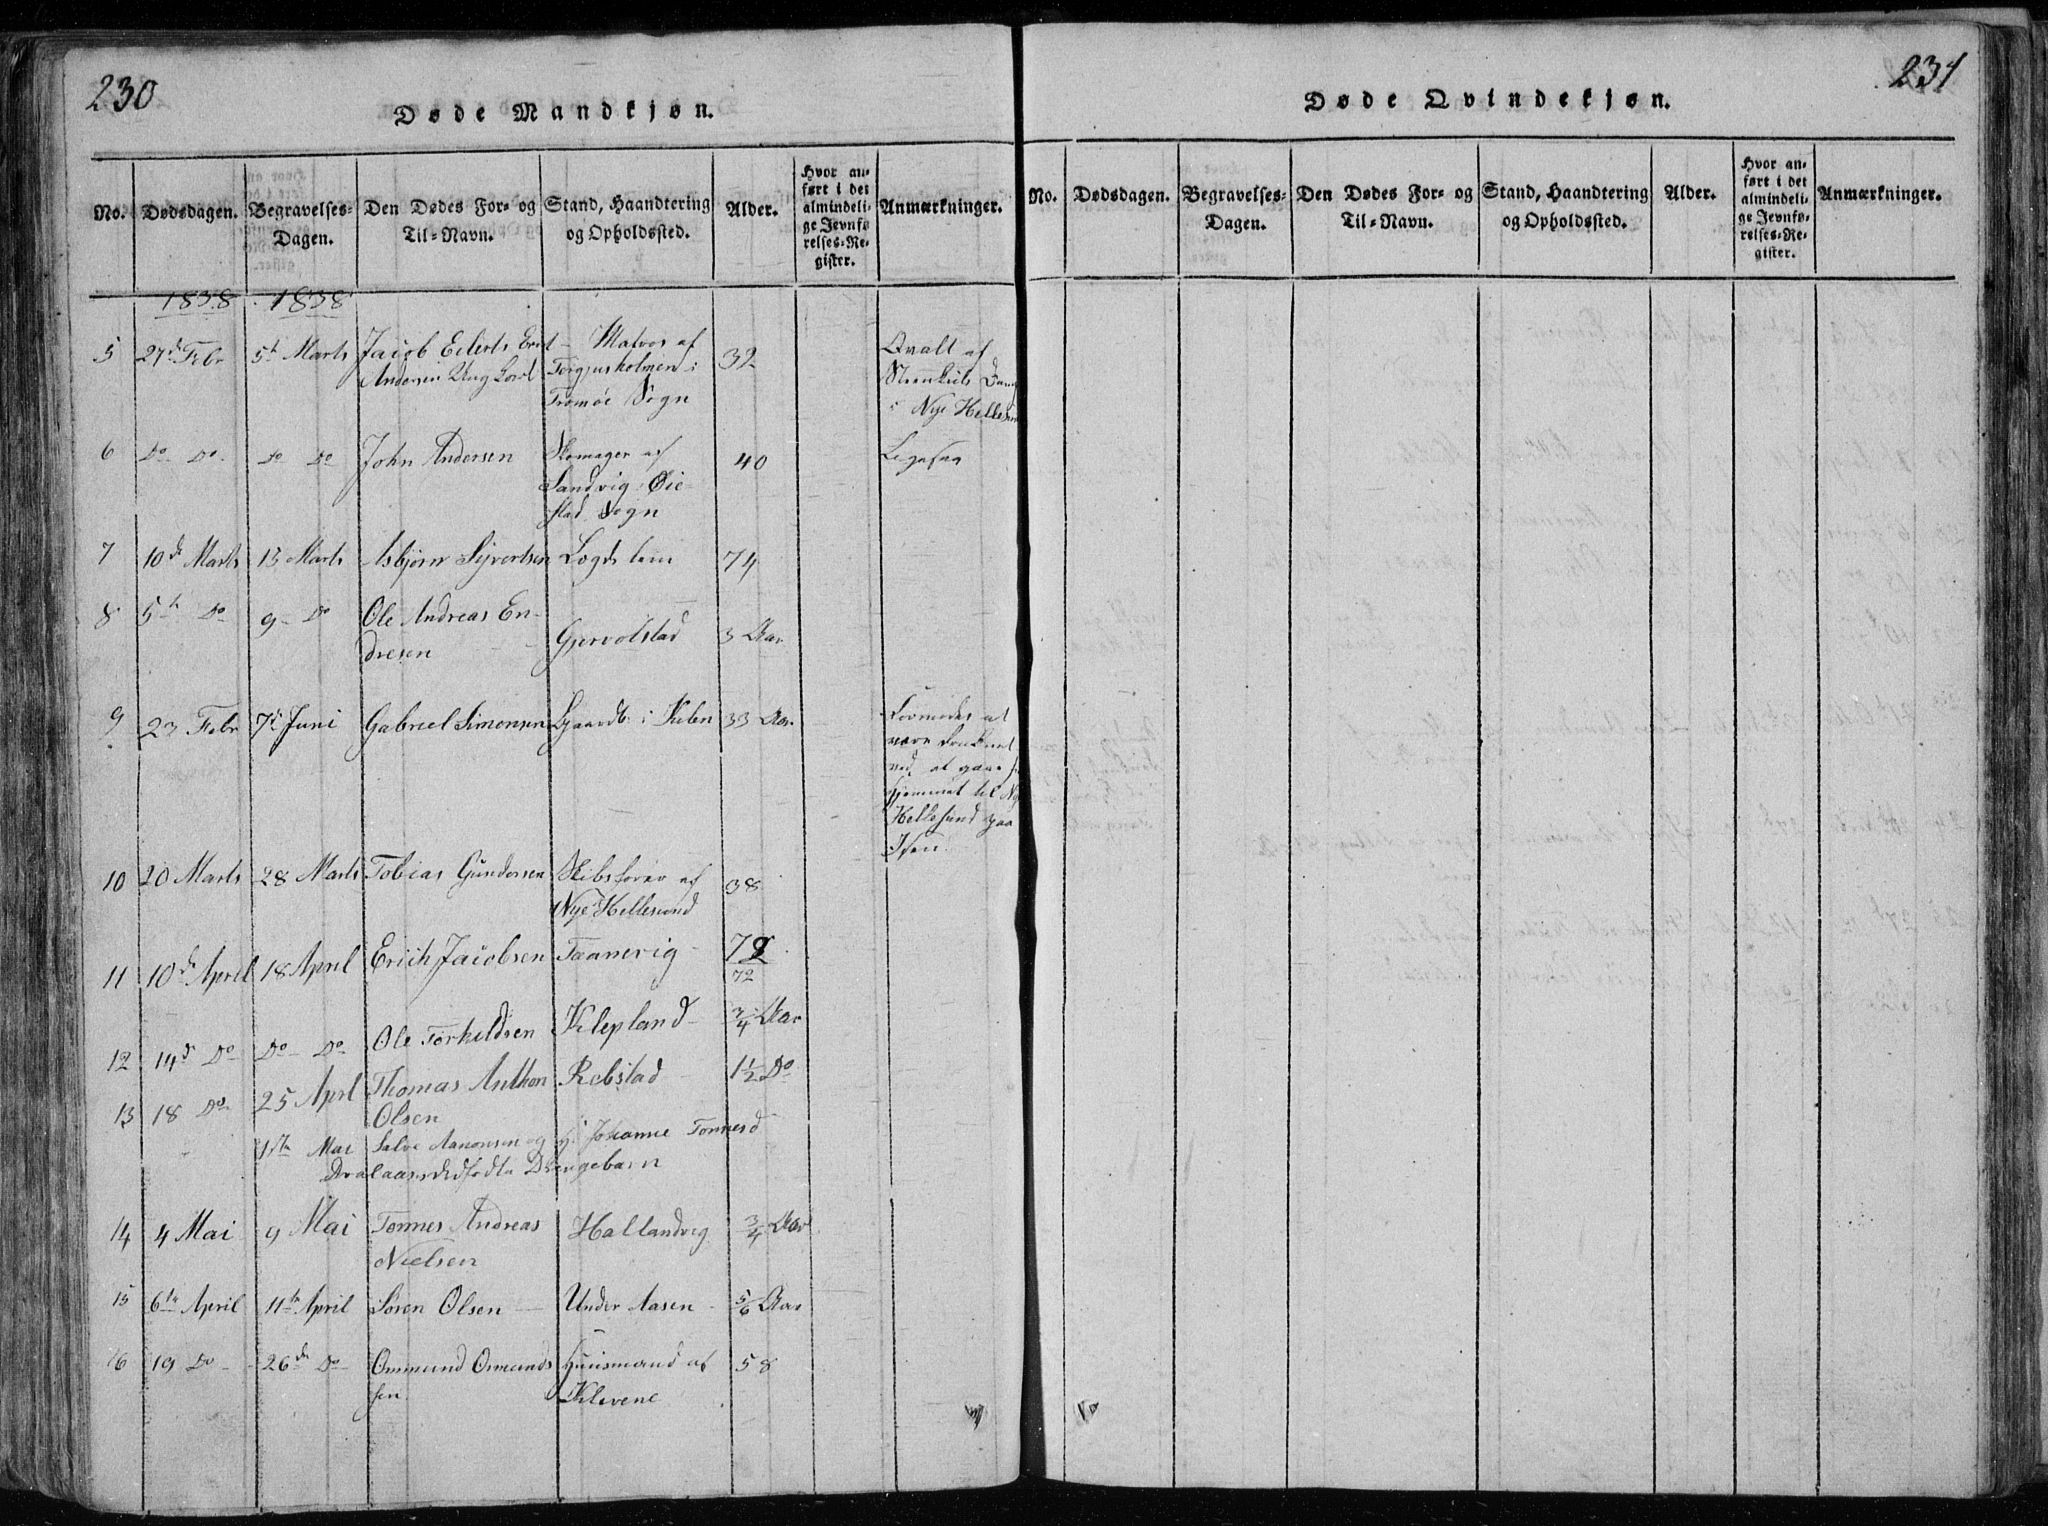 230
Døde Mandkjøn.
No. Dødsdagen. Begravelses-Dagen. Den Dødes For- og Til-Navn. Stand, Haandtering og Opholdssted. Alder. Hvor anført i det almindelige Jevnførelses-Register. Anmærkninger.
1838 1838
5 27de Febr 5te Marts Jacob Eilerts Matros af 32 Qvalt af
Andersen Torgjusholmen i Steenkuls
Tromøe Sogn i Nye Hellesund
6 Do Do Do Do John Andersen Skomager af 40 Ligesaa
Sandvig Øie-
stad Sogn
7 10de Marts 13 Marts Asbjørn Syvertsen Logds lem 74
8 5te Do 9 Do Ole Andreas En- Gjervolstad 3 Aar
dresen
9 23 Febr 7de Juni Gabriel Simonsen i Kilen 33 Aar Formodes at
være druknet
ved at gaae fra
Hjemmet til Nye
Hellesund paa
Isen.
10 20 Marts 28 Marts Tobias Gundersen Skibsfører af 38
Nye Hellesund
11 10de April 18 April Erich Jacobsen Taanevig 72
72
12 14de Do Do Do Ole Torkildsen Klepland 3/4 Aar
13 18 Do 25 Aprl Thomas Anthon Rebstad 1 1/2 Do
Olsen
1ste Mai Salve Aanonsen og H. Johanne Tønnesd
Dvalaas dødfødte Drengebarn
14 4 Mai 9 Mai Tønnes Andreas Hallandvig 3/4 Aar
Nielsen
15 6te April 11te April Søren Olsen Under Aasen 5/6 Aar
16 19 Do 26de Do Ommund Omunds Huusmand af 58
sen Klevene
231
Døde Qvindekjøn.
No. Dødsdagen. Begravelses-Dagen. Den Dødes For- og Til-Navn. Stand, Haandtering og Opholdssted. Alder. Hvor anført i det almindelige Jevnførelses-Register. Anmærkninger.